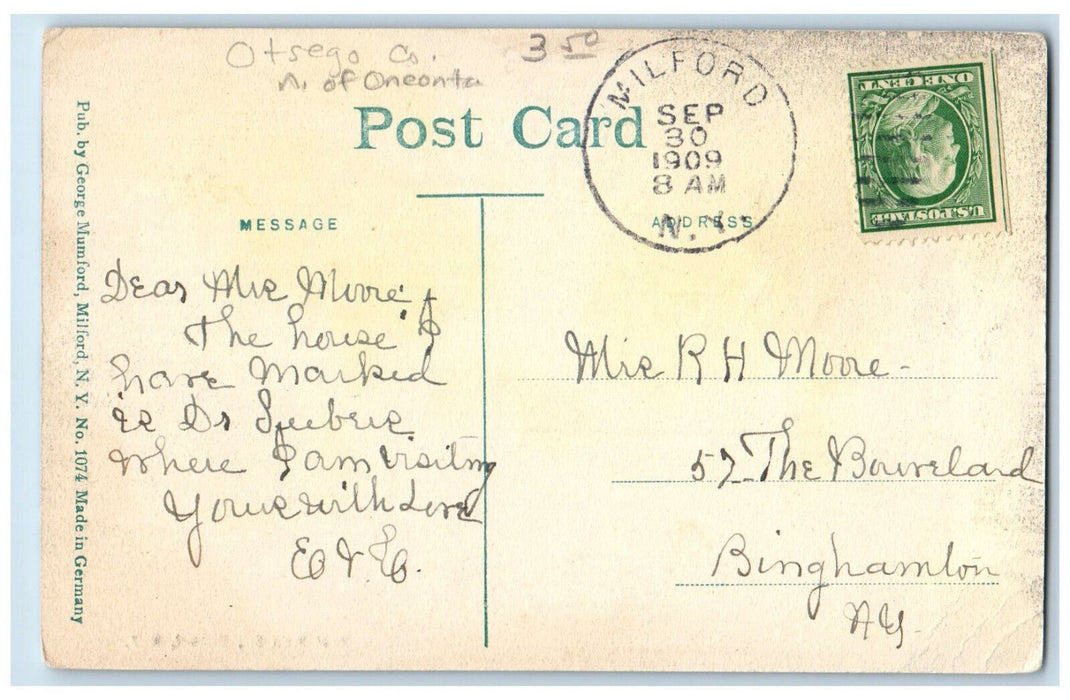 Otsego Co.
N. of Oneonta
3 50
Post Card
MILFORD
SEP
30
1909
8 AM
N.Y.
ONE CENT
U.S. POSTAGE
MESSAGE
ADDRESS
Pub. by George Mumford, Milford, N. Y. No. 1074 Made in Germany
Dear Mrs Moore
The house I
have marked
is Dr
where I am visiting
Yours with Love
Mrs R H Moore-
57 The
Binghamton
NY.